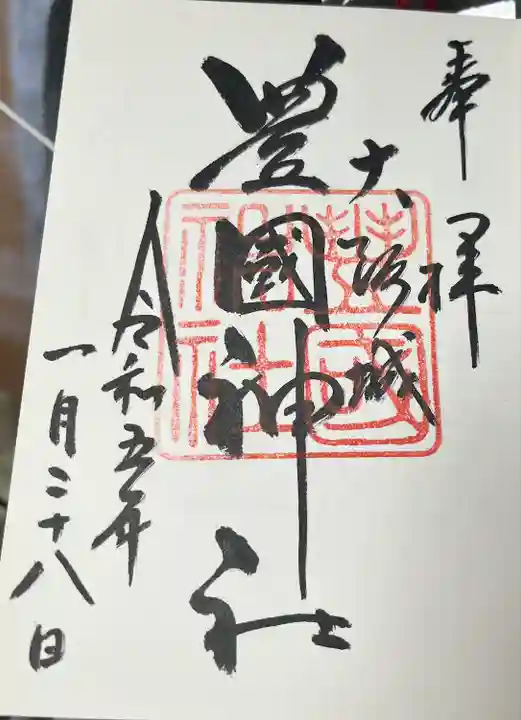 奉拝
大阪城
豊國神社
令和五年
一月二十八日
豊國神社